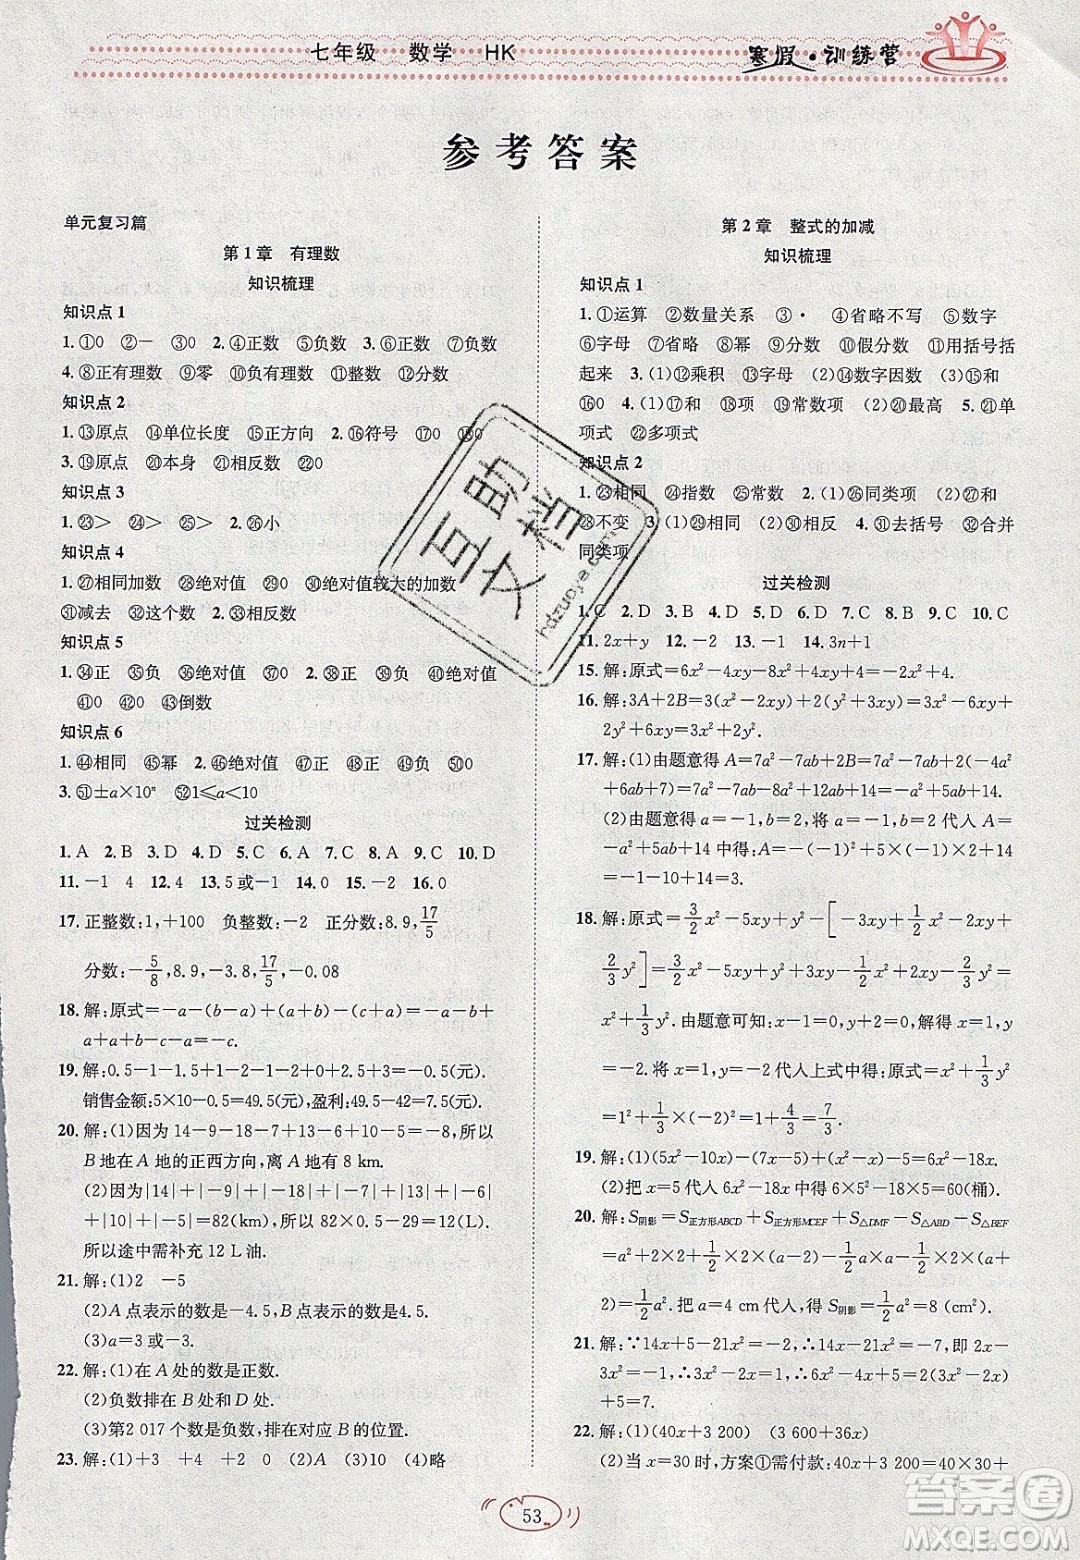 七年级 数学 HK
寒假·训练营
参考答案
单元复习篇
第1章 有理数
知识梳理
知识点1
1.①0 ②− ③0 2.④正数 ⑤负数 3.⑥正数 ⑦负数
4.⑧正有理数 ⑨零 ⑩负有理数 ⑪整数 ⑫分数
知识点2
1.⑬原点 ⑭单位长度 ⑮正方向 2.⑯符号 ⑰0 ⑱0
3.⑲原点 ⑳本身 ㉑相反数 ㉒0
知识点3
1.㉓> ㉔> ㉕> 2.㉖小
知识点4
1.㉗相同加数 ㉘绝对值 ㉙0 ㉚绝对值较大的加数
㉛减去 ㉜这个数 ㉝相反数
知识点5
1.㉞正 ㉟负 ㊱绝对值 ㊲0 2.㊳正 ㊴负 ㊵绝对值
㊶0 ㊷0 ㊸倒数
知识点6
1.㊹相同 ㊺幂 2.㊻绝对值 ㊼正 ㊽负 ㊾正 ㊿0
3.51±a×10ⁿ 52 1≤a<10
过关检测
1.A 2.B 3.D 4.D 5.C 6.A 7.C 8.A 9.C 10.D
11.−1 4 12.4 13.5或−1 14.0 15.−2 16.0
17.正整数:1,+100 负整数:−2 正分数:8.9,17/5
分数:−5/8,8.9,−3.8,17/5,−0.08
18.解:原式=−a−(b−a)+(a+b)−(c+a)=−a−b+
a+a+b−c−a=−c.
19.解:0.5−1−1.5+1−2−1−1+0+4+0.5=−0.5(元).
销售金额:5×10−0.5=49.5(元),盈利:49.5−42=7.5(元).
20.解:(1)因为14−9−18−7+13−6+10−5=−8,所以
B地在A地的正西方向,距离A地有8 km.
(2)因为|14|+|−9|+|−18|+|−7|+|13|+|−6|+
|10|+|−5|=82(km),所以82×0.5−29=12(L).
所以途中需补充12 L油.
21.解:(1)2 −5
(2)A点表示的数是−4.5,B点表示的数是4.5.
(3)a=3或−3.
22.解:(1)在A处的数是正数.
(2)负数排在B处和D处.
(3)第2 017个数是负数,排在对应B的位置.
23.解:(1)+3 +4 +2 0 (2)A (3)10 (4)略
第2章 整式的加减
知识梳理
知识点1
1.①运算 ②数量关系 ③· ④省略不写 ⑤数字
⑥字母 ⑦省略 ⑧幂 ⑨分数 ⑩假分数 ⑪用括号括
起来 3.(1)⑫乘积 ⑬字母 (2)⑭数字因数 (3)⑮和
⑯0 4.(1)⑰和 ⑱项 ⑲常数项 (2)⑳最高 5.㉑单
项式 ㉒多项式
知识点2
1.㉓相同 ㉔指数 ㉕数 2.(1)㉖同类项 (2)㉗和
㉘不变 3.(1)㉙相同 ㉚相反 4.㉛去括号 ㉜合并
同类项
过关检测
1.C 2.D 3.B 4.D 5.D 6.D 7.C 8.B 9.C 10.C
11.2x+y 12.−2 13.−1 14.3n+1
15.解:原式=6x²−4xy−8x²+4xy+4=−2x²+4.
16.解:3A+2B=3(x²−xy)+2(x²+3xy)=3x²−3xy+
2y²+6xy=3x²+3xy+2y².
17.解:(1)由题意得A=7a²−7ab+2B=7a²−7ab+2(−4a²+
6ab+7)=7a²−7ab−8a²+12ab+14=−a²+5ab+14.
(2)由题意得a=−1,b=2,将a=−1,b=2代入A=
−a²+5ab+14中得:A=−(−1)²+5×(−1)×2+
14=3.
18.解:原式=3/2x²−5xy+y²−[−3xy+1/2x²+
2/3y²]=3/2x²−5xy+y²+3xy−1/2x²−2/3y²=
x²+1/3y²−2xy.由题意可知:x−1=0,y+2=0,解得x=
1,y=−2.将x=1,y=−2代入上式中得:原式=x²+1/3y²−2xy
=1²+1/3×(−2)²−2×1×(−2)=1+4/3+4=19/3.
19.解:(1)(5x²−10x)−(7x−5)+(x²−x)−5=6x²−18x.
(2)把x=5代入6x²−18x中得6×5²−18×5=60(桶).
20.解:S阴影=S正方形ABCD+S正方形MCEF+S△DMF−S△ABD−S△BEF
(2)把a=4 cm代入,得S阴影=1/2a²=8(cm²).
21.解:∵14x+5−21x²=−2,∴14x−21x²=−7,即2x−
3x²=−1,∴3x²−2x=1,∴6x²−4x+5=2(3x²−2x)
+5=7.
22.解:(1)(40x+3 200) (3 600+36x)
(2)当x=30时,方案①需付款:40x+3 200=40×30+
53